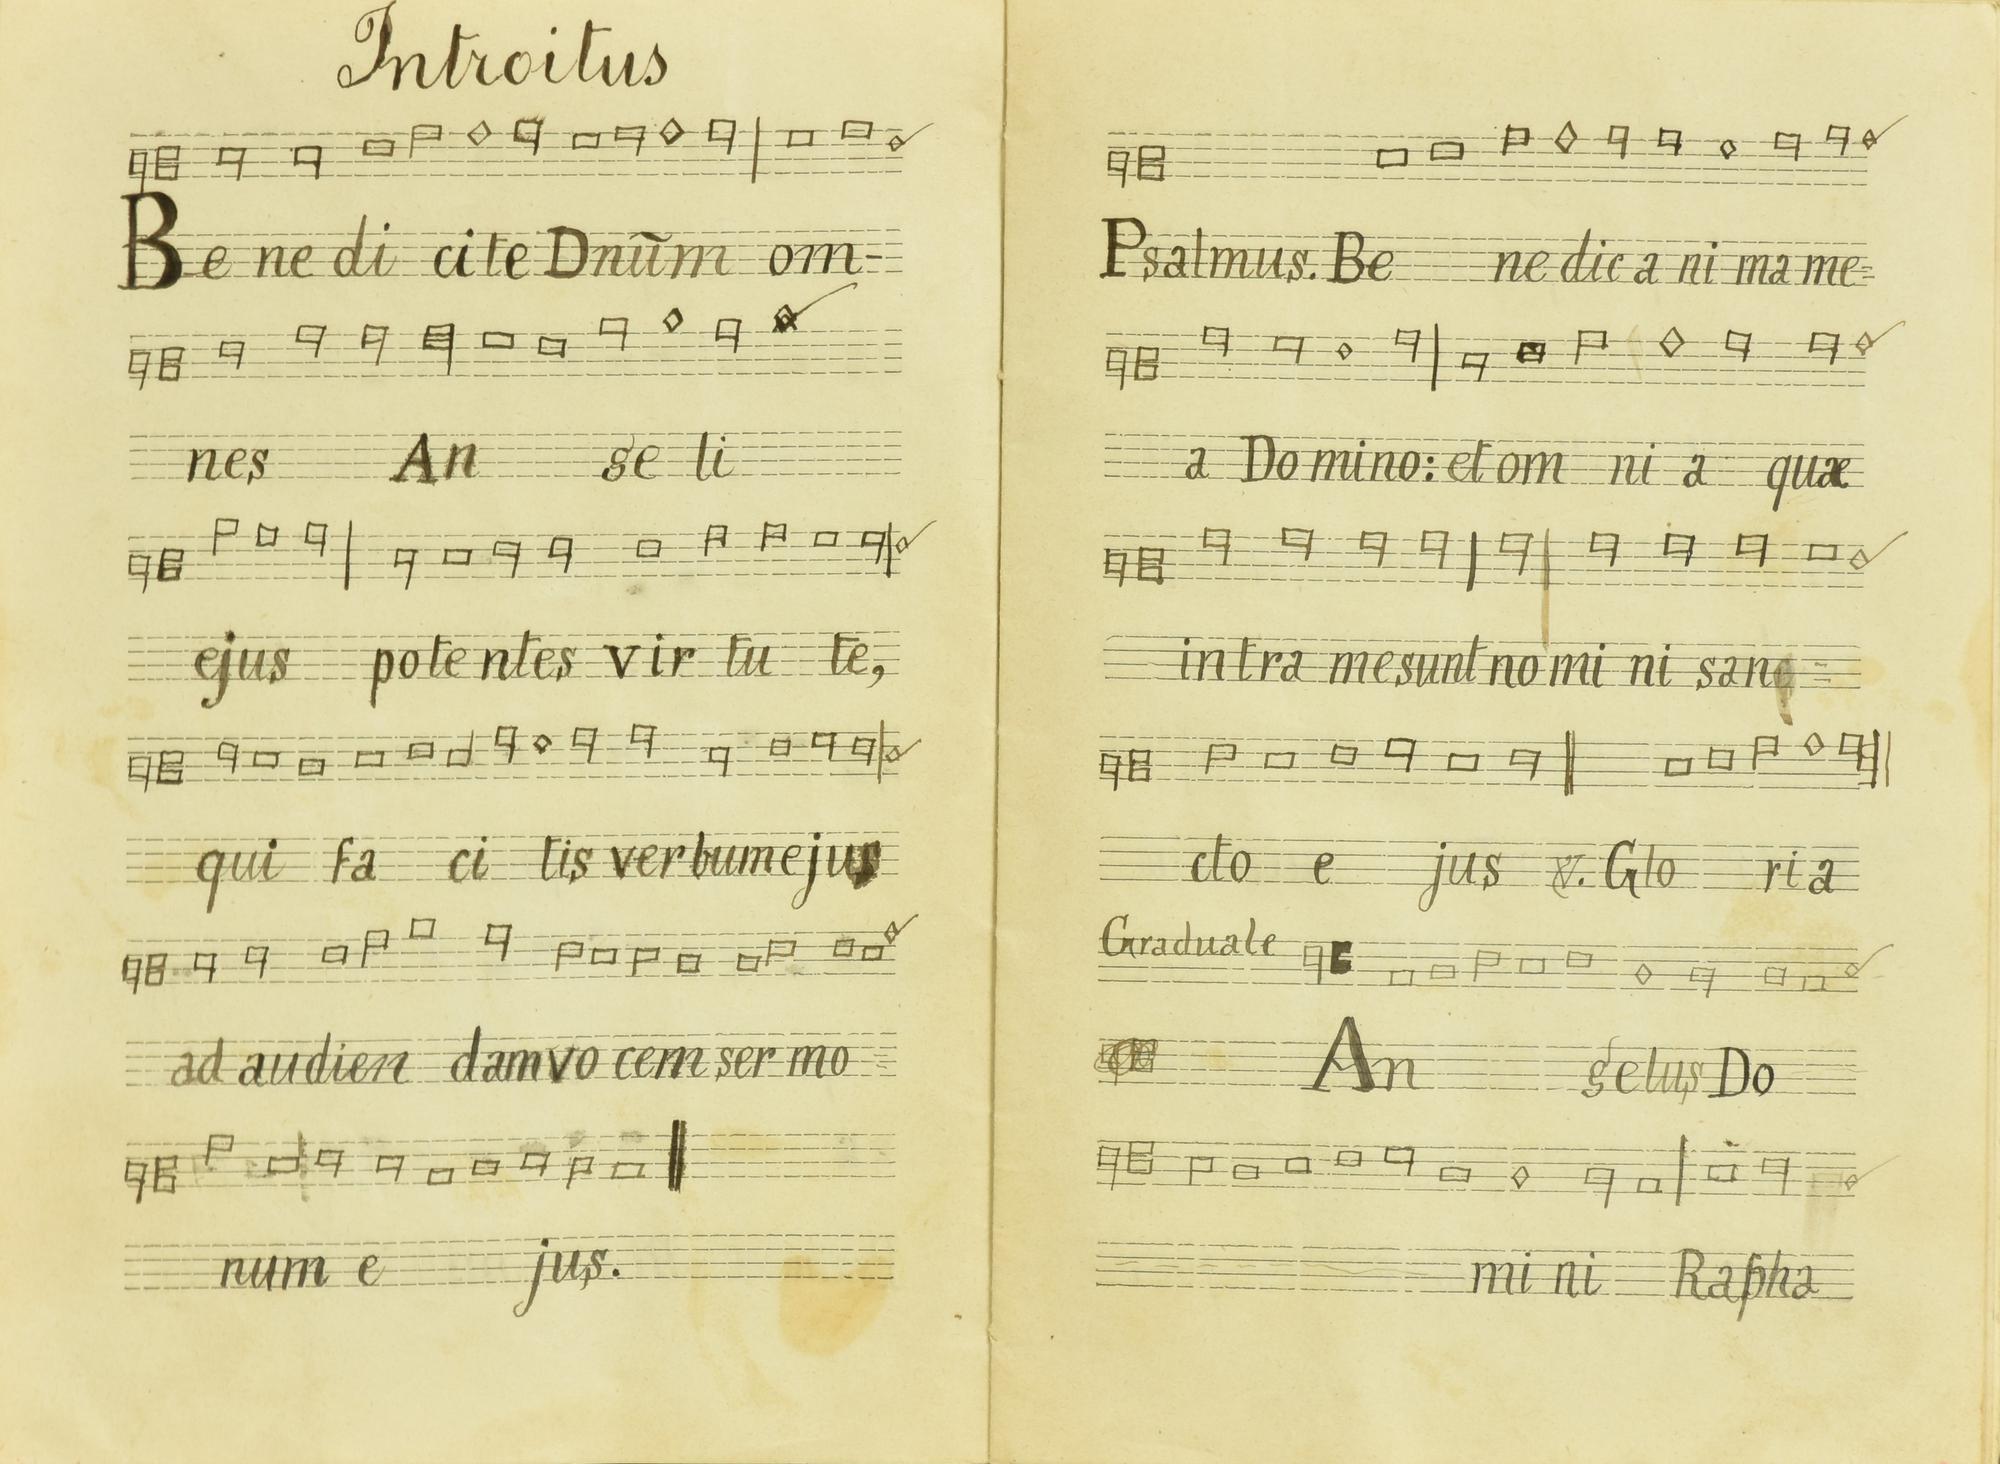 Introitus
Be ne di cite Dnūm om-
nes An ge li
ejus potentes vir tu te,
qui fa ci tis verbum ejus
ad audien dam vo cem ser mo =
num e jus.
Psalmus. Be ne dic a ni ma me=
a Domino: et om ni a quæ
intra me sunt no mi ni sanc =
cto e jus ℣. Glo ri a
Graduale
An gelus Do
mi ni Rapha